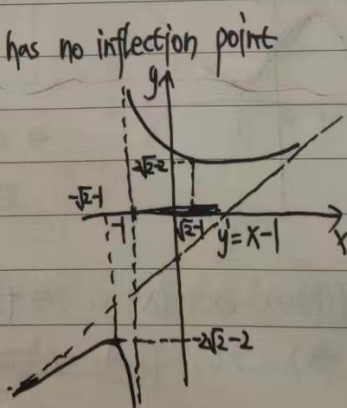 has no inflection point
y
2√2-2
-√2-1
-1
√2-1
y=x-1
x
-2√2-2